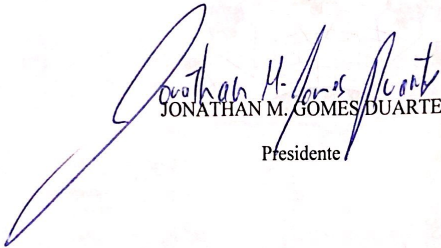 Jonathan M. Gomes Duarte
JONATHAN M. GOMES DUARTE
Presidente